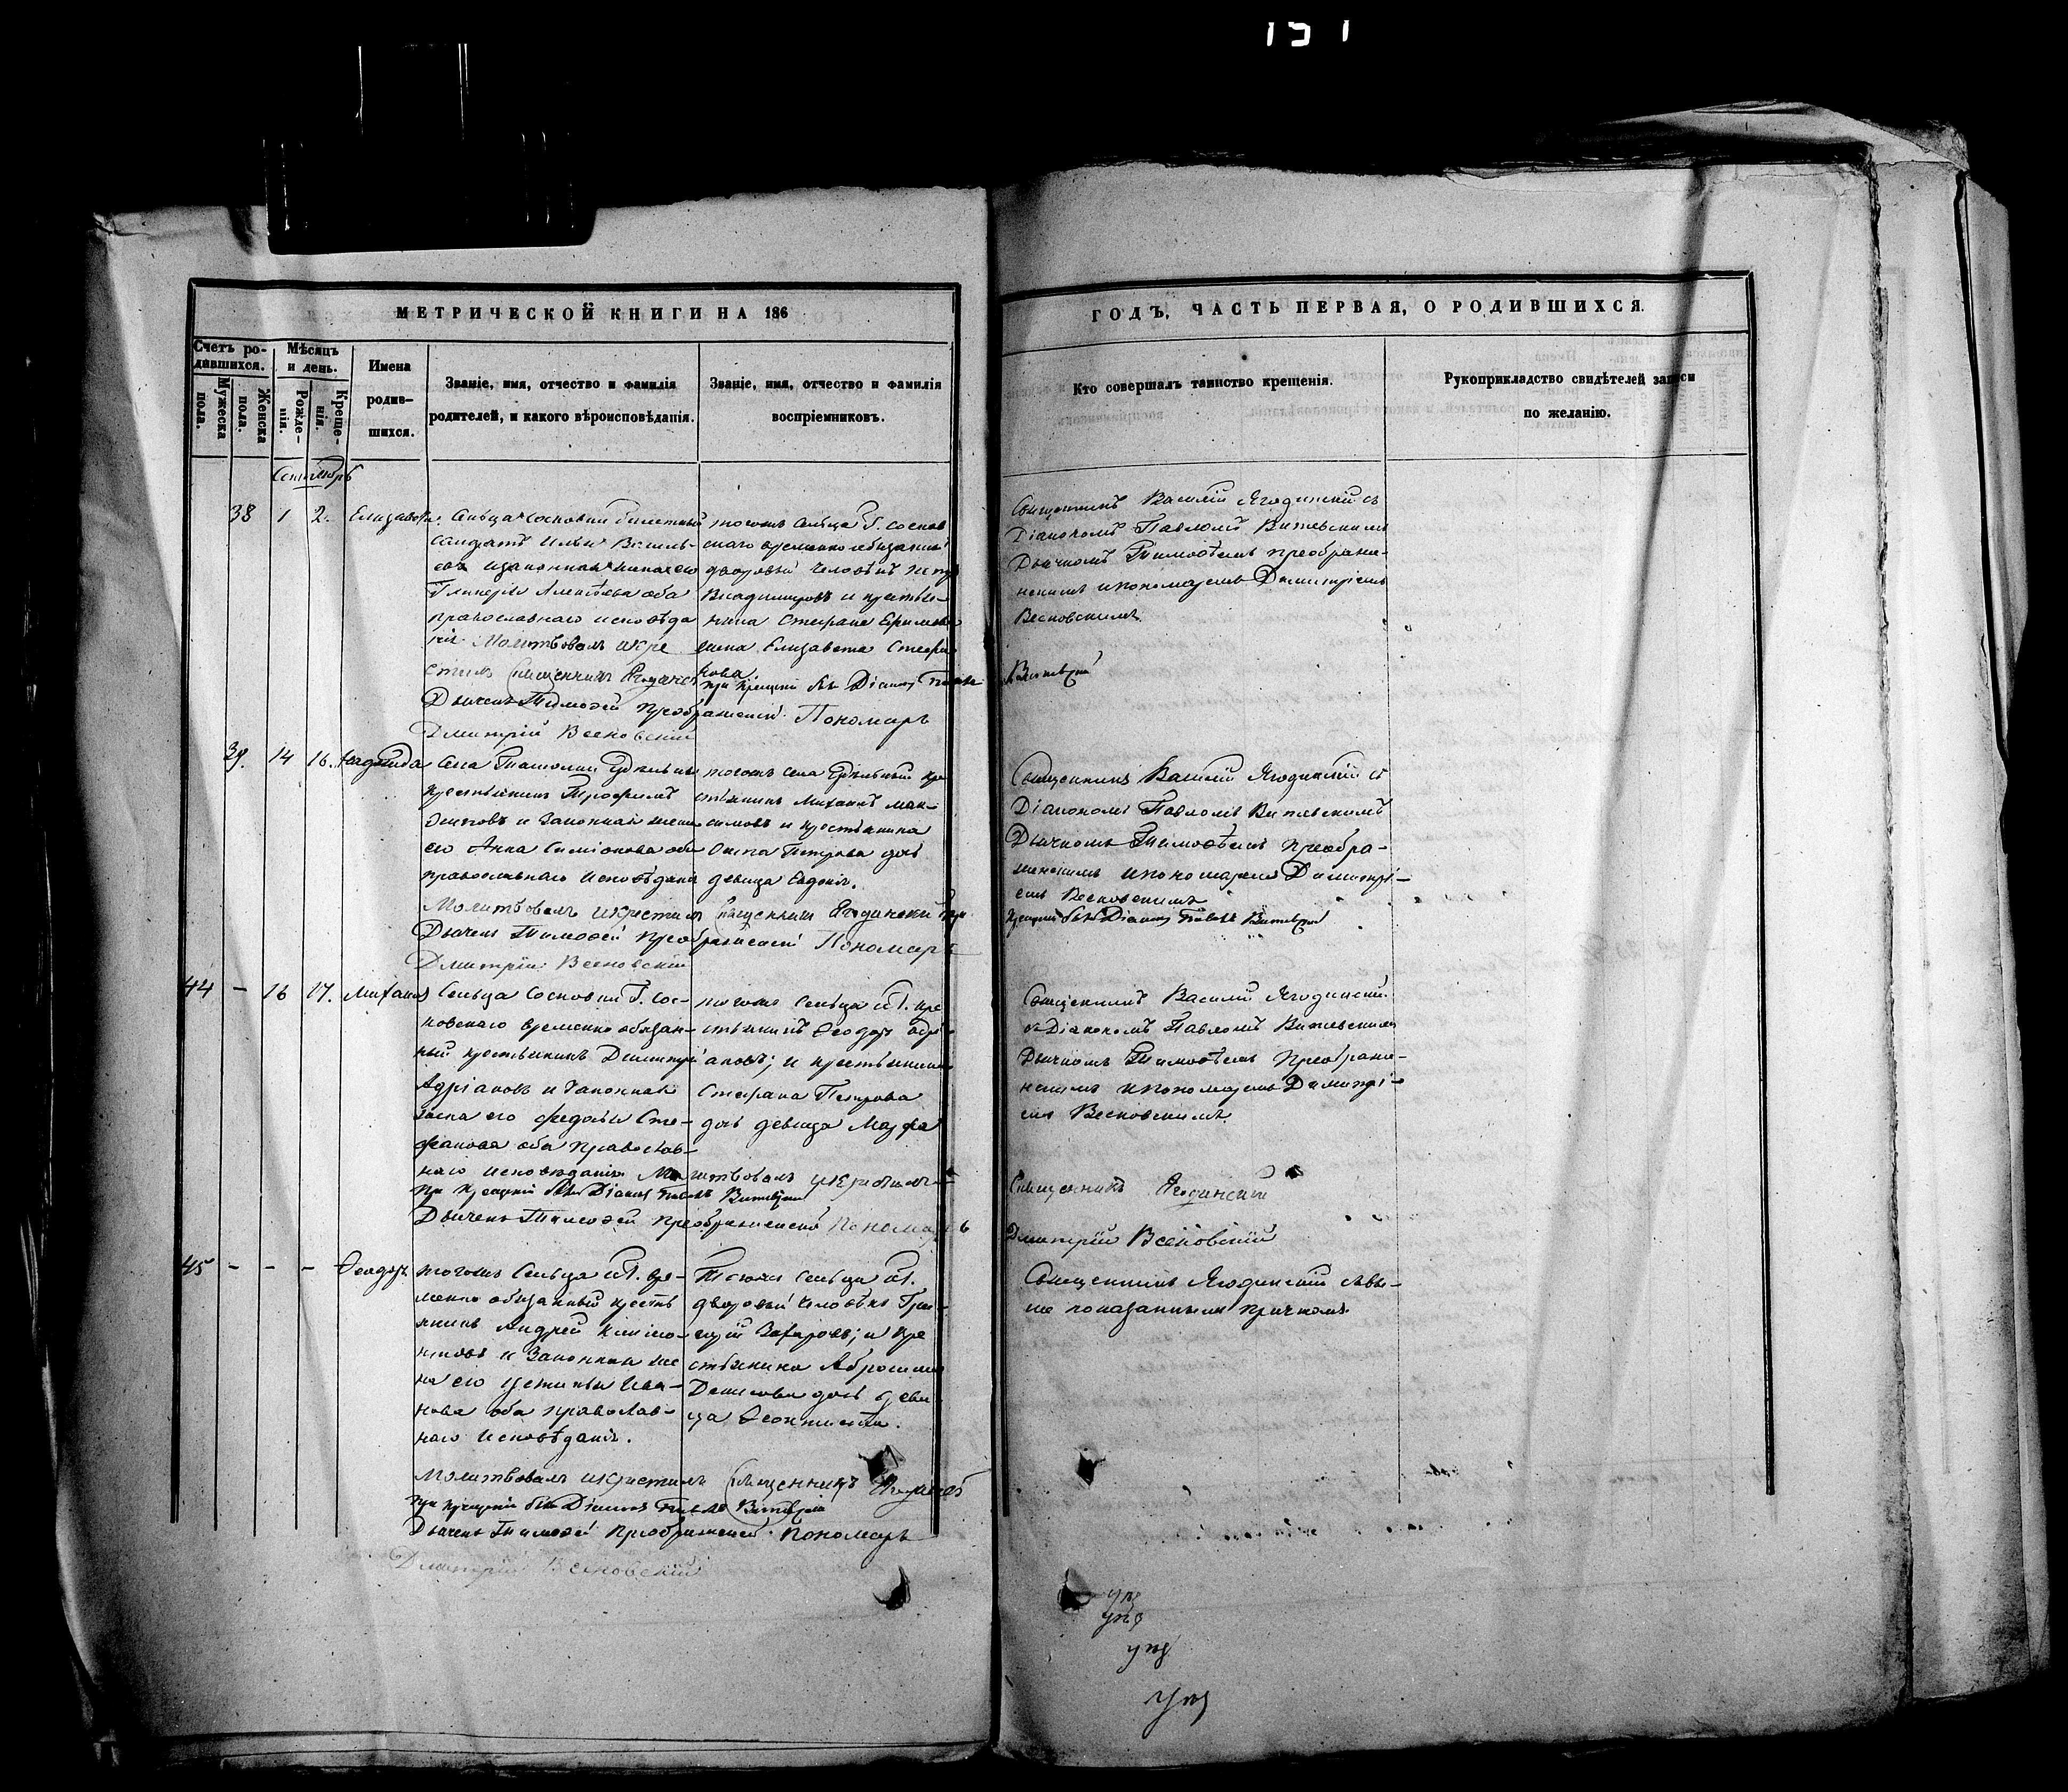 151
МЕТРИЧЕСКОЙ КНИГИ НА 186
ГОДЪ, ЧАСТЬ ПЕРВАЯ, О РОДИВШИХСЯ.
Счетъ ро-
дившихся.
Мужеска
пола.
Женска
пола.
Мѣсяцъ
и день.
Рожде-
нія.
Креще-
нія.
Имена
родив-
шихся.
Званіе, имя, отчество и фамилія
родителей, и какого вѣроисповѣданія.
Званіе, имя, отчество и фамилія
воспріемниковъ.
Кто совершалъ таинство крещенія.
Рукоприкладство свидѣтелей записи
по желанію.
Сентябрь
38 1 2. Елизавета.
Сельца Сосновки билетный
солдатъ Илья Василь-
евъ и законная жена его
Гликерія Алексѣева оба
православнаго исповѣда
нія. Молитвовалъ и кре
стилъ Священникъ
Дьячекъ Тимоѳей Преображенскій Пономарь
Дмитрій Весновскій
тогожъ сельца Г. Соснов
скаго временнообязанный
дворовый человѣкъ Петръ
Владимировъ и крестья-
нина Стефана Ефимова
жена Елизавета Стефа
нова.
при крещеніи былъ Діаконъ Павелъ
Священникъ Василій Ягодинскій съ
Діакономъ Павломъ Витевскимъ
Дьячкомъ Тимоѳеемъ Преображе-
нскимъ и пономаремъ Димитріемъ
Весновскимъ
Витевскій
39. 14 16. Надежда
Села Ташолки Удѣльный
крестьянинъ Трофимъ
Осиповъ и законная жена
его Анна Симіонова оба
православнаго исповѣданія
Молитвовалъ и крестилъ Священникъ Ягодинскій При
Дьячекъ Тимоѳей Преображенскій Пономарь
Дмитрій Весновскій
тогожъ села Удѣльный кре
стьянинъ Михаилъ Мак-
симовъ и крестьянина
Осипа Петрова дочь
девица Евдокія.
Священникъ Василій Ягодинскій съ
Діакономъ Павломъ Витевскимъ
Дьячкомъ Тимоѳеемъ Преобра-
женскимъ и пономаремъ Димитрі-
емъ Весновскимъ
крещеніи былъ Діаконъ Павелъ Витевскій
44 - 16 17. Михаилъ
Сельца Сосновки Г. Сос-
новскаго временно обязан-
ный крестьянинъ Димитрій
Адріановъ и законная
жена его Федосья Сте-
фанова оба православ-
наго исповѣданія. Молитвовалъ и крестилъ
При крещеніи былъ Діаконъ Павелъ Витевскій
Дьячекъ Тимоѳей Преображенскій Пономарь
тогожъ сельца и Г. кре
стьянинъ Ѳеодоръ Адрі-
ановъ; и крестьянина
Стефана Петрова
дочь девица Марфа
Священникъ Василій Ягодинскій
съ Діакономъ Павломъ Витевскимъ
Дьячкомъ Тимоѳеемъ Преображе-
нскимъ и пономаремъ Димитрі-
емъ Весновскимъ.
Священникъ Ягодинскій
Дмитрій Весновскій
45 - - - Ѳеодоръ
тогожъ Сельца и Г. вре-
менно обязанный кресть
янинъ Андрей
и законная же
на его Устинья Ива-
нова оба православ-
наго исповѣданія.
Молитвовалъ и крестилъ Священникъ
при крещеніи былъ Діаконъ Павелъ Витевскій
Дьячекъ Тимоѳей Преображенскій Пономарь
Дмитрій Весновскій
Тогожъ сельца и Г.
дворовый человѣкъ Гри-
горій Захаровъ; и кре
стьянина Абросима
Денисова дочь деви
ца Ѳеоктиста.
Священникъ Ягодинскій съ вы-
ше показаннымъ причтомъ